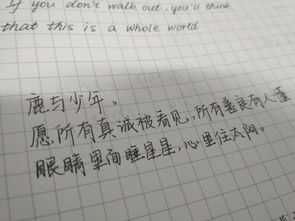 If you don't walk out, you'll think
that this is a whole world.
鹿与少年。
愿所有真诚被看见,所有善良有人懂
眼睛里面睡星星,心里住太阳。